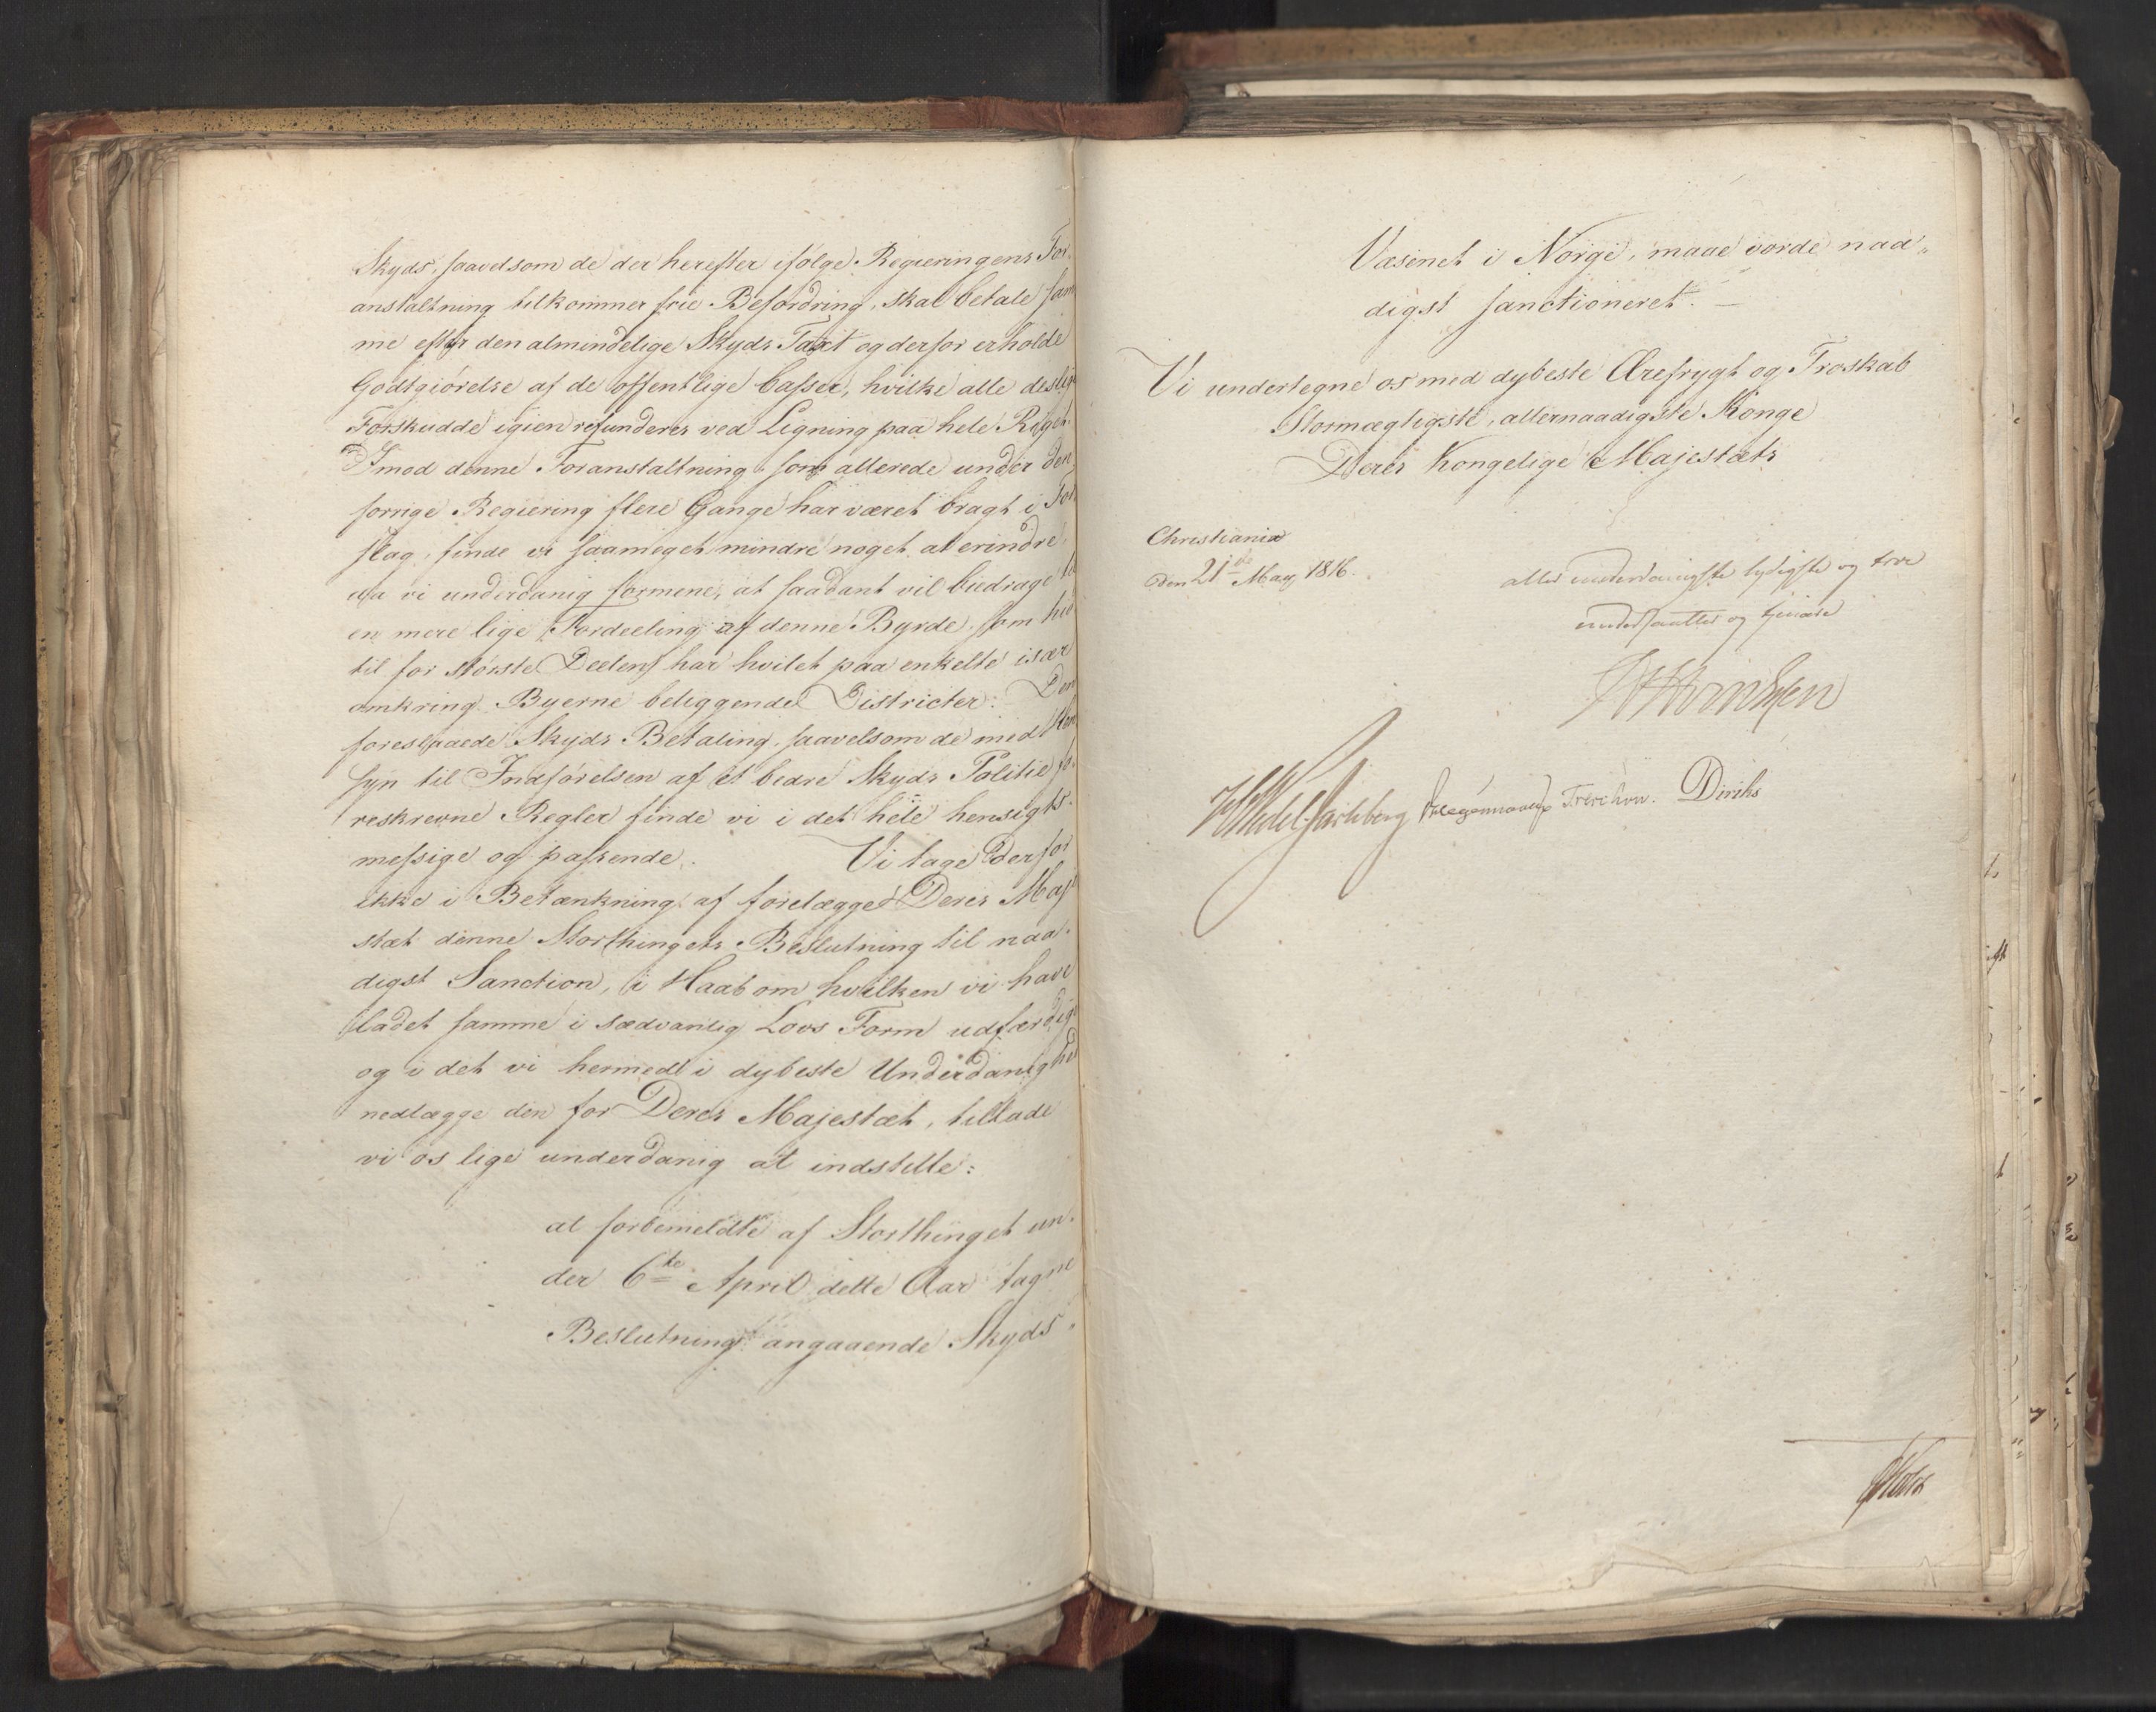 Skyds, saavelsom de der herefter ifølge Regieringens For-
anstaltning tilkommer frie Befordring, skal betale sam
me efter den almindelige Skyds Taxt og derfor erholde
Godtgiørelse af de offentlige Casser, hvilke alle deslige
Forskudde igien refunderes ved Ligning paa hele Riget.
Imod denne Foranstaltning, som allerede under den
forrige Regiering flere Gange har været bragt i For
slag, finde vi saameget mindre noget at erindre,
da vi underdanig formene, at saadant vil bidrage til
en mere lige Fordeeling af denne Byrde, som hid
til for største Deelen har hvilet paa enkelte især
omkring Byerne beliggende Districter. Den
foreslaaede Skyds Betaling, saavelsom de med Hen
syn til Indførelsen af et bedre Skyds Politie fo-
reskrevne Regler finde vi i det hele hensigts-
messige og passende. Vi tage derfor
ikke i Betænkning af forelægge Deres Maje
stæt denne Storthingets Beslutning til naa-
digst Sanction, i Haab om hvilken vi have
ladet samme i sædvanlig Lovs Form udfærdige
og i det vi hermed i dybeste Underdanighed
nedlægge den for Deres Majestæt, tillade
vi os lige underdanig at indstille:
at forbemeldte af Storthinget un-
der 6te April dette Aar tagne
Beslutning angaaende Skyds-
Væsenet i Norge, maae vorde naa-
digst sanctioneret. —
Vi undertegne os med dybeste Ærefrygt og Troskab
Stormægtigste, allernaadigste Konge
Deres Kongelige Majestæts
Christiania
Den 21de May 1816.
allerunderdanigste lydigste og troe
undersaatter og tjenere
Wedel Jarlsberg Treschow. Diriks